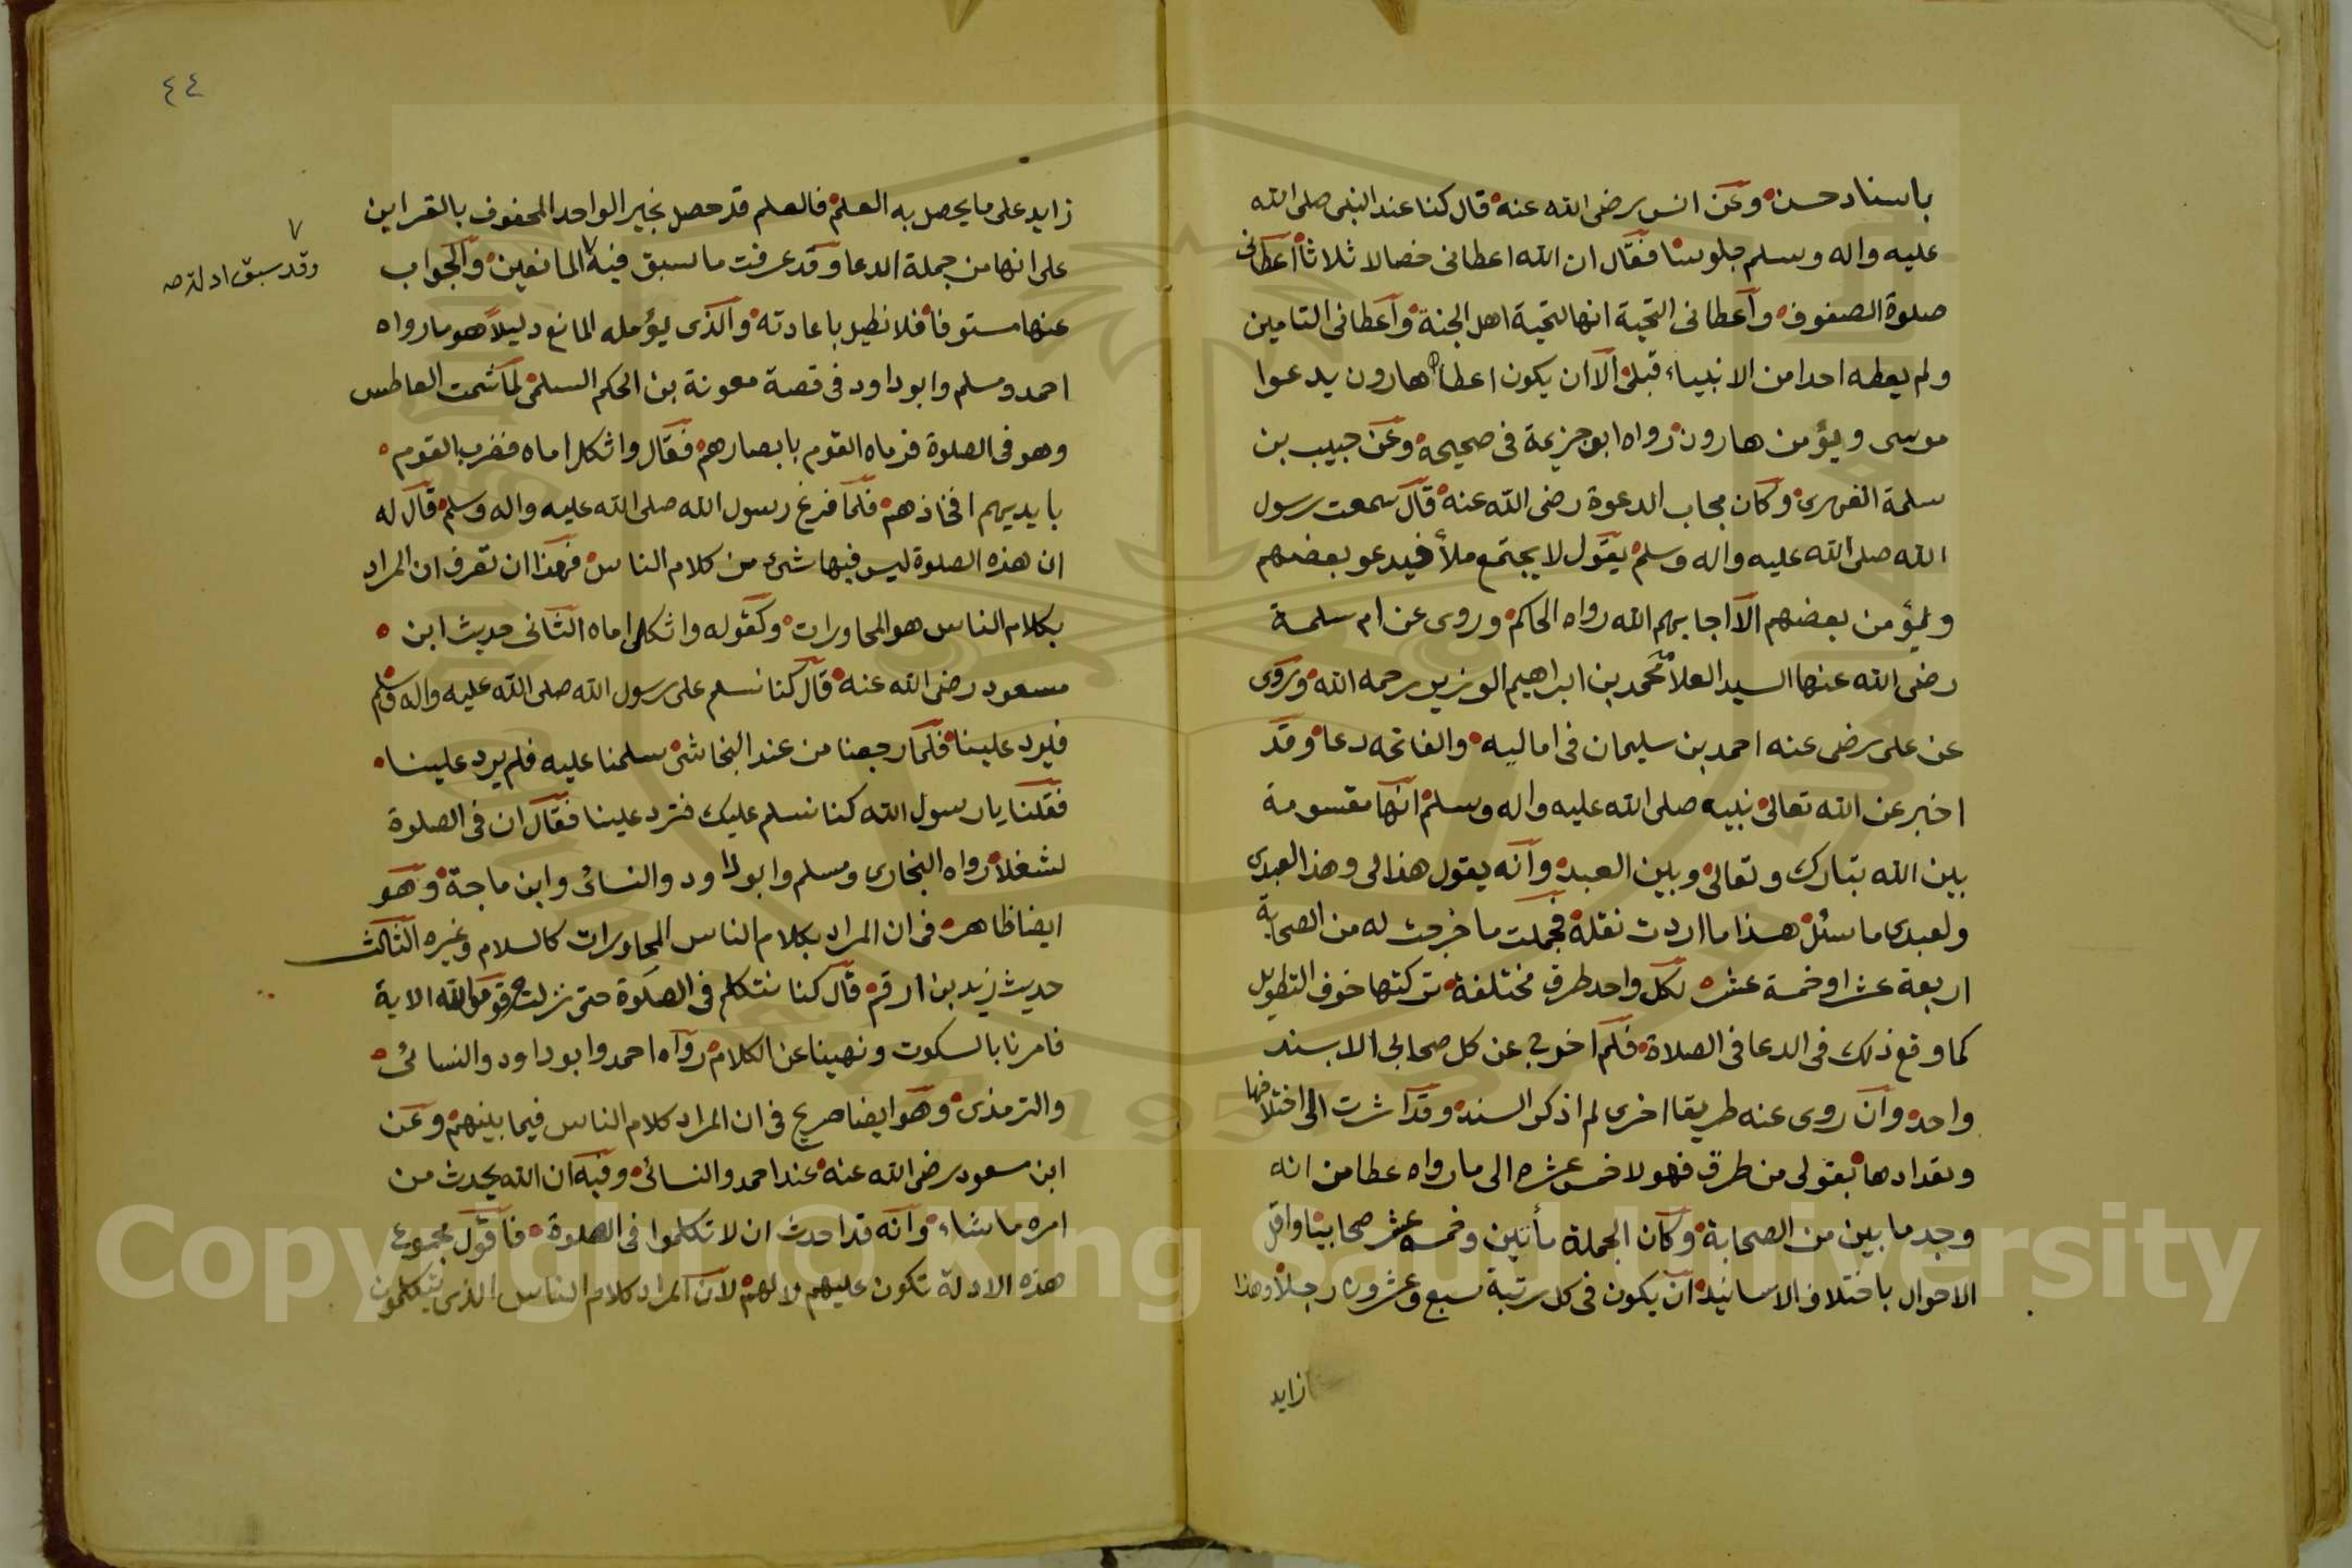 باسناد حسن وعن انس رضى الله عنه قال كنا عند النبى صلى الله
عليه واله وسلم جلوسنا فقال ان الله اعطانى خصالا ثلاثا اعطانى
صلوة الصفوف واعطانى التحية انها لتحية اهل الجنة واعطانى التامين
ولم يعطه احدا من الانبياء قبلى الا ان يكون اعطاه هارون يدعوا
موسى ويؤمن هارون رواه ابو جزيمة فى صحيحه وعن حبيب بن
سلمة الفهرى وكان مجاب الدعوة رضى الله عنه قال سمعت رسول
الله صلى الله عليه واله وسلم يقول لا يجتمع ملأ فيدعو بعضهم
ويؤمن بعضهم الا اجابهم الله رواه الحاكم وروى عن ام سلمة
رضى الله عنها السيد العلامة محمد بن ابراهيم الوزير رحمه الله وروى
عن على رضى عنه احمد بن سليمان فى اماليه والفاتحه دعا وقد
اخبر عن الله تعالى نبيه صلى الله عليه واله وسلم انها مقسومة
بين الله تبارك وتعالى وبين العبد وانه يقول هذا لى وهذا لعبدى
ولعبدى ما سئل هذا ما اردت نقله فجملت ما خرجت له من الصحابة
اربعة عشر او خمسة عشر لكل واحد طرق مختلفة تركتها خوف التطويل
كما وقع ذلك فى الدعا فى الصلاة فلم اخرج عن كل صحابى الا بسند
واحد وان روى عنه طريقا اخرى لم اذكر السند وقد اشرت الى اختلافها
وتعدادها بقولى من طرق فهولا خمس عشره الى ما رواه عطا من انه
وجد ما بين من الصحابة وكان الجملة مأتين وخمسه عشر صحابيا واقل
الاحوال باختلاف الاسانيد ان يكون فى كل رتبة سبع وعشرون رجلا وهذا
زايد
٤٤
زايد على ما يحصل به العلم فالعلم قد حصل بخبر الواحد المحفوف بالقراين
على انها من جملة الدعا وقد عرفت ما سبق فيه المانعين والجواب
وقد سبق ادلته صه
عنها مستوفا فلا نطيل باعادته والذى يؤمله المانع دليلا هو ما رواه
احمد ومسلم وابو داود فى قصة معوية بن الحكم السلمى لما شمت العاطس
وهو فى الصلوة فرماه القوم بابصارهم فقال واثكل اماه فضرب القوم
بايديهم افخاذهم فلما فرغ رسول الله صلى الله عليه واله وسلم قال له
ان هذه الصلوة ليس فيها شئ من كلام الناس فهذا ان تعرف ان المراد
بكلام الناس هو المحاورات وكقوله واثكلى اماه الثانى حديث ابن
مسعود رضى الله عنه قال كنا نسلم على رسول الله صلى الله عليه واله وسلم
فيرد علينا فلما رجعنا من عند النجاشى سلمنا عليه فلم يرد علينا
فقلنا يا رسول الله كنا نسلم عليك فترد علينا فقال ان فى الصلوة
لشغلا رواه البخارى ومسلم وابو داود والنسائى وابن ماجة وهو
ايضا ظاهر فى ان المراد بكلام الناس المحاورات كالسلام وغيره الثالث
حديث زيد بن ارقم قال كنا نتكلم فى الصلوة حتى نزلت وقوموا لله الاية
فامرنا بالسكوت ونهينا عن الكلام رواه احمد وابو داود والنسائى
والترمذى وهو ايضا صريح فى ان المراد كلام الناس فيما بينهم وعن
ابن مسعود رضى الله عنه عند احمد والنسائى وفيه ان الله يحدث من
امره ما شاء وانه قد احدث ان لا تكلموا فى الصلوة فاقول مجموع
هذه الادلة تكون عليهم لا لهم لان المراد كلام الناس الذى يتكلمون
Copyright © King Saud University